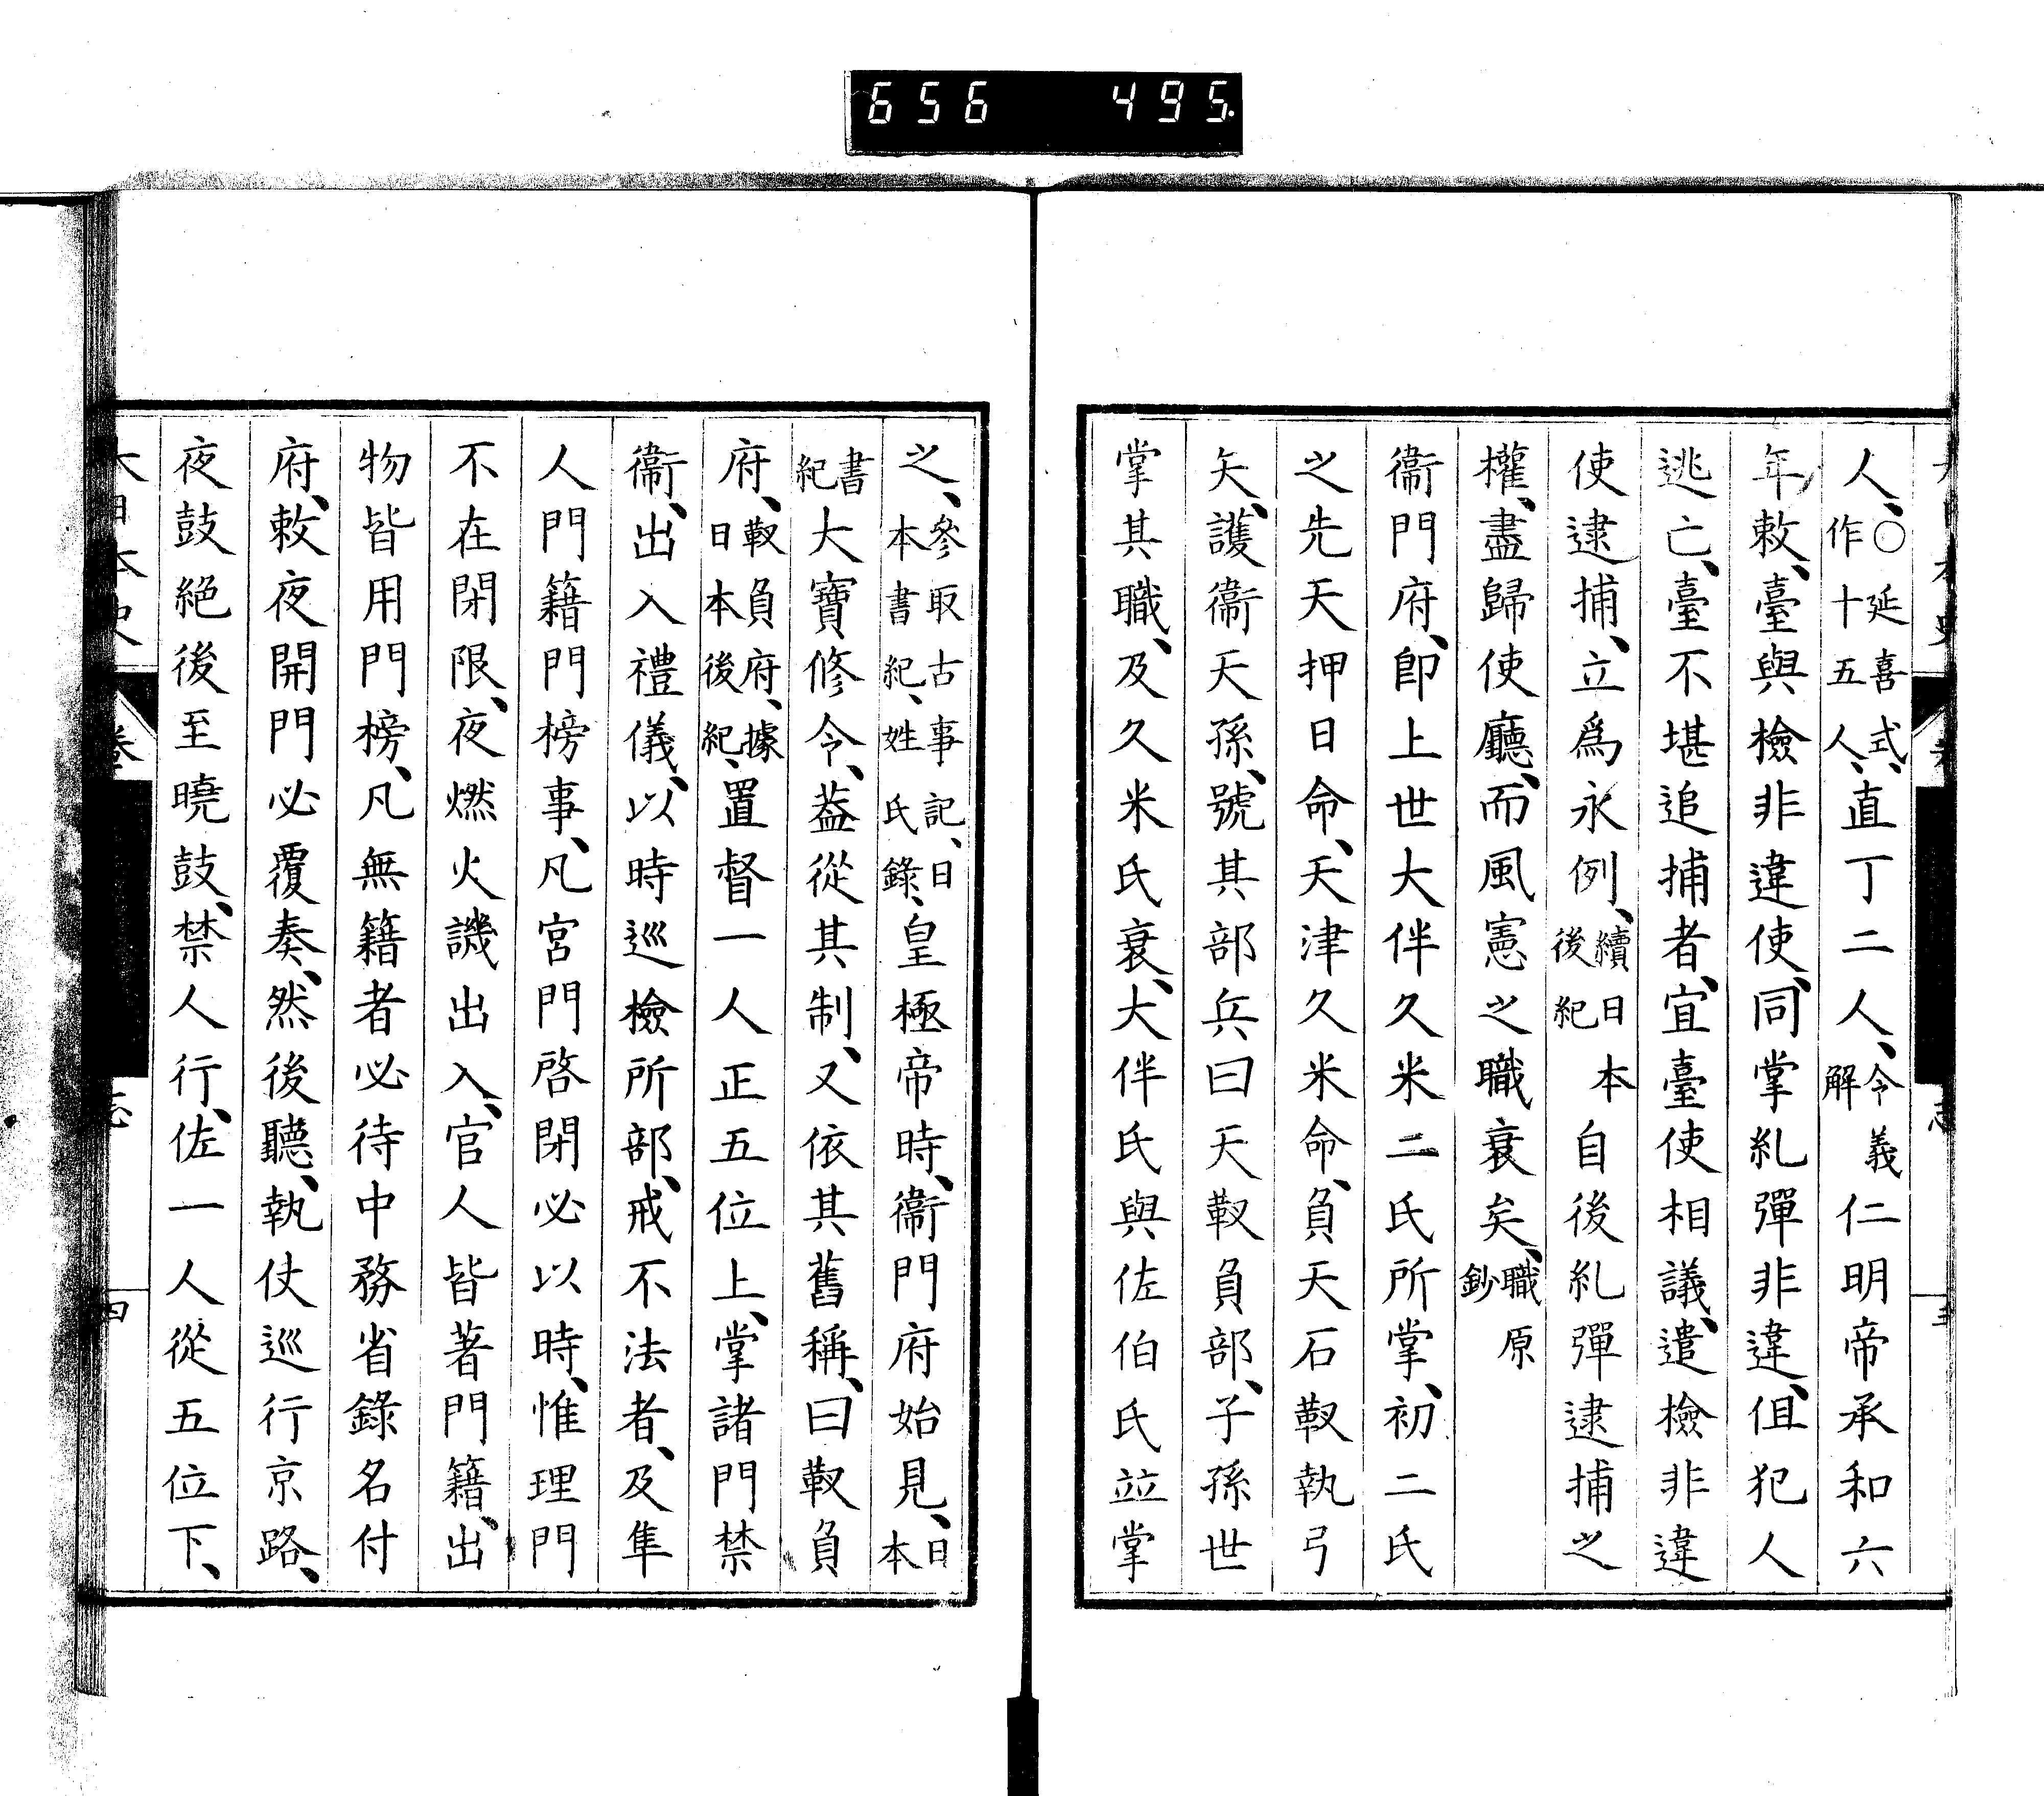 656 495
人、○延喜式、作十五人、直丁二人、令義解仁明帝承和六
年、敕、臺與檢非違使、同掌糺彈非違、但犯人
逃亡、臺不堪追捕者、宜臺使相議、遣檢非違
使逮捕、立爲永例、續日本後紀自後糺彈逮捕之
權、盡歸使廳、而風憲之職衰矣、職原鈔
衞門府、卽上世大伴久米二氏所掌、初二氏
之先天押日命、天津久米命、負天石靫執弓
矢、護衞天孫、號其部兵曰天靫負部、子孫世
掌其職、及久米氏衰、大伴氏與佐伯氏竝掌
之、參取古事記、日本書紀、姓氏錄、皇極帝時、衞門府始見、日本
書紀大寶修令、葢從其制、又依其舊稱、曰靫負
府、靫負府、據日本後紀、置督一人正五位上、掌諸門禁
衞、出入禮儀、以時巡檢所部、戒不法者、及隼
人門籍門榜事、凡宮門啓閉必以時、惟理門
不在閉限、夜燃火譏出入、官人皆著門籍、出
物皆用門榜、凡無籍者必待中務省錄名付
府、敕夜開門必覆奏、然後聽、執仗巡行京路、
夜鼓絕後至曉鼓、禁人行、佐一人從五位下、